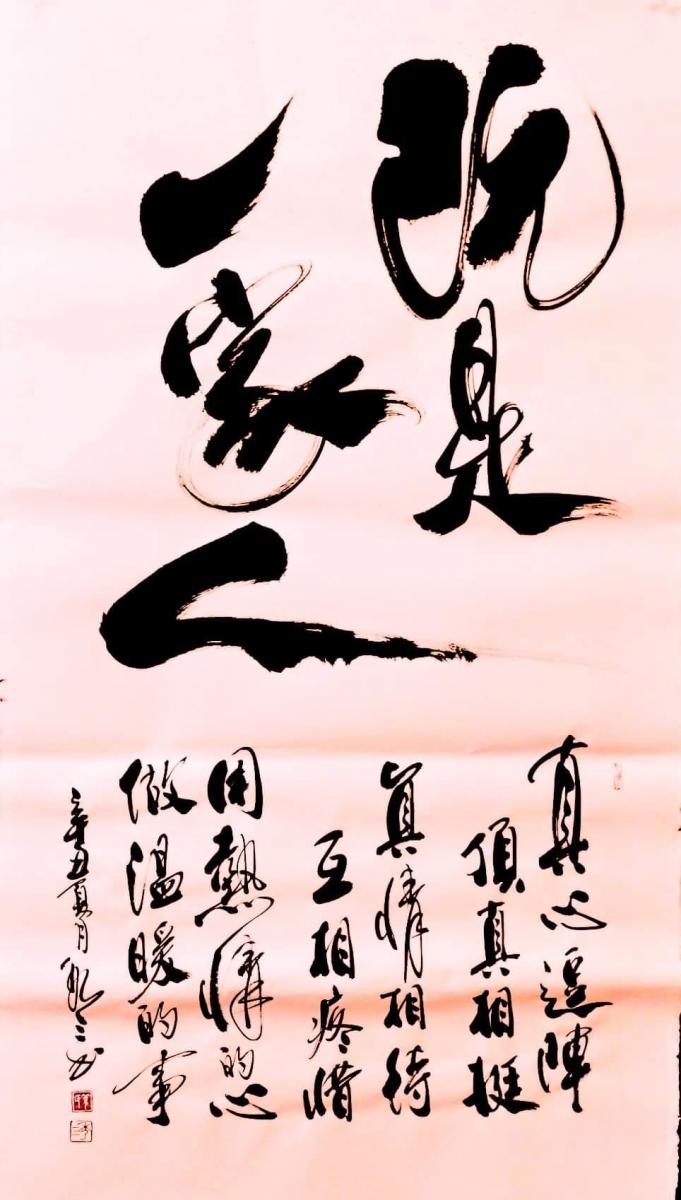 阮是
一家人
真心逗陣
頂真相挺
真情相待
互相疼惜
用熱情的心
做溫暖的事
辛丑夏月